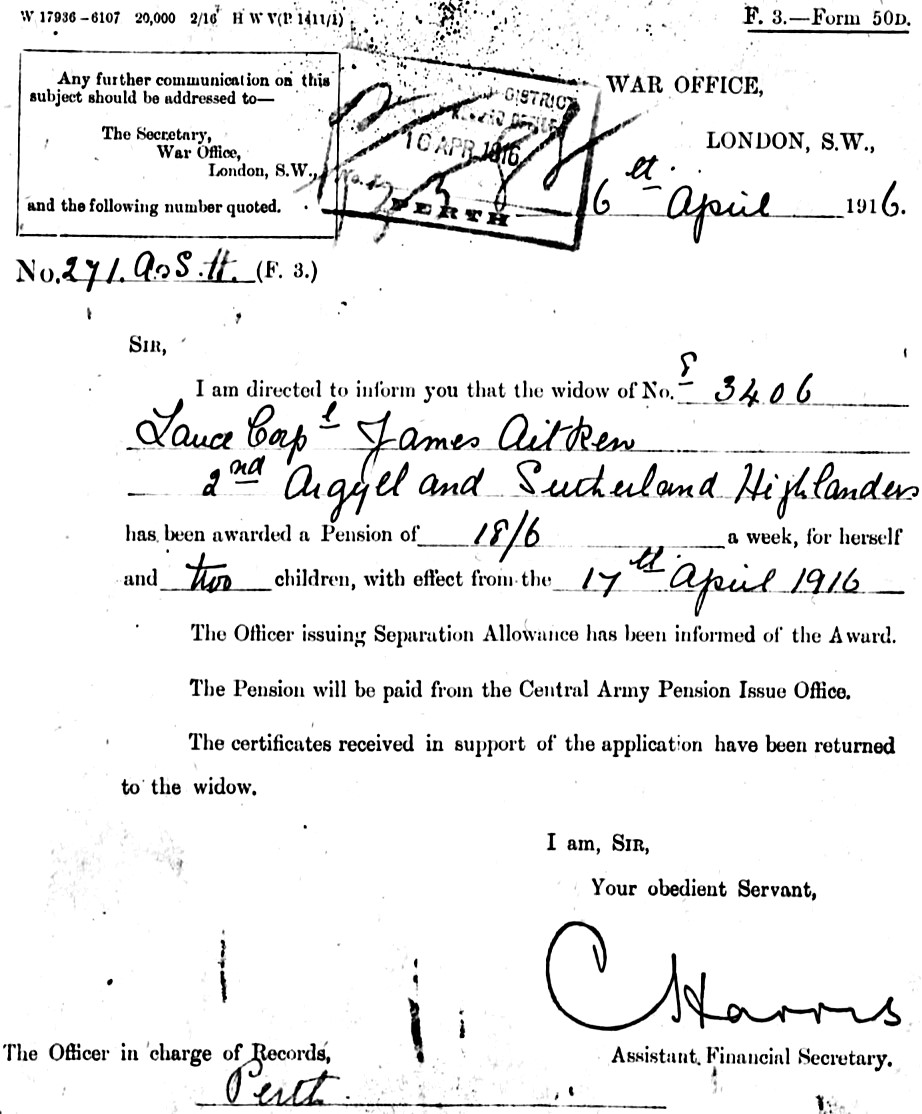 W 17936—6107 20,000 2/16 H W V(P. 1411/1)
F. 3.—Form 50D.
Any further communication on this
subject should be addressed to—
The Secretary,
War Office,
London, S.W.,
and the following number quoted.
DISTRICT
RECORD OFFICE
10 APR 1916
PERTH
WAR OFFICE,
LONDON, S.W.,
6th April 1916.
No. 271. A & S. H. (F. 3.)
SIR,
I am directed to inform you that the widow of No. S/3406
Lance Corpl James Aitken
2nd Argyll and Sutherland Highlanders
has been awarded a Pension of 18/6 a week, for herself
and two children, with effect from the 17th April 1916
The Officer issuing Separation Allowance has been informed of the Award.
The Pension will be paid from the Central Army Pension Issue Office.
The certificates received in support of the application have been returned
to the widow.
I am, SIR,
Your obedient Servant,
C Harris
Assistant Financial Secretary.
The Officer in charge of Records,
Perth